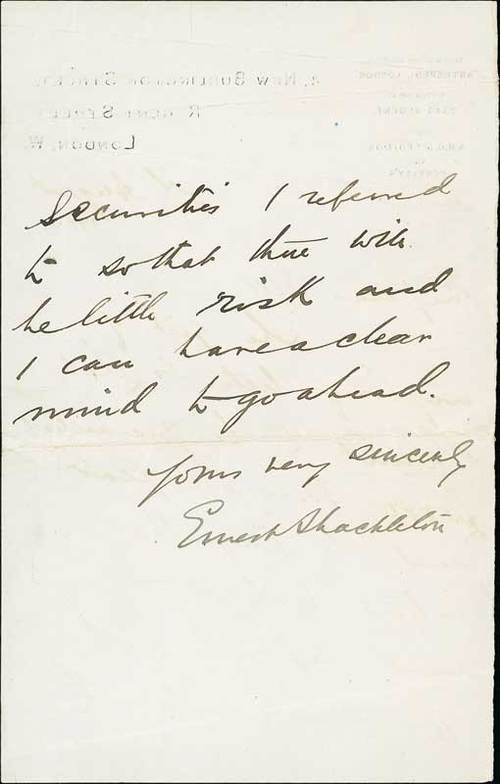 4, New Burlington Street,
Regent Street
London, W.
securities I referred
to so that there will
be little risk and
I can have a clear
mind to go ahead.
Yours very sincerely
Ernest Shackleton